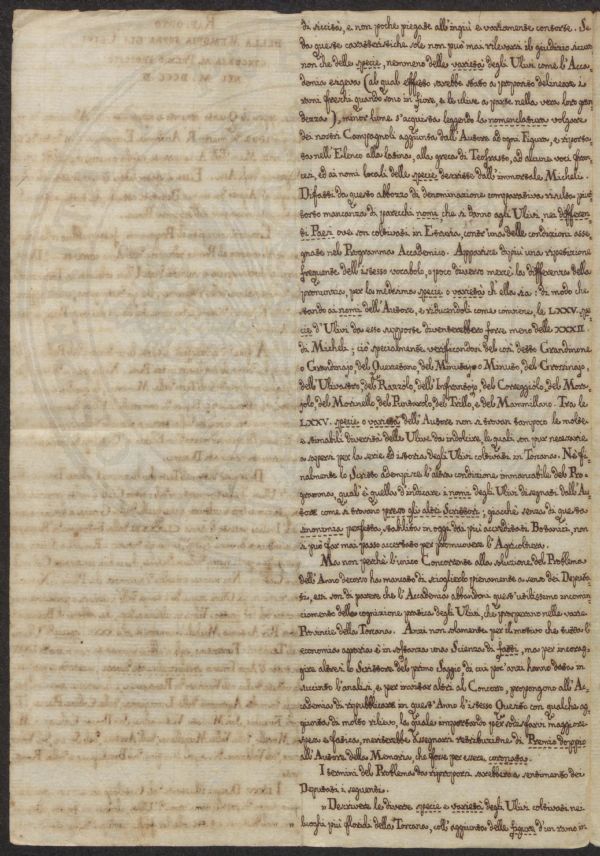 di siccità, e non poche piegate all'ingiù e variamente contorte. Se
da queste caratteristiche sole non può mai rilevarsi il giudizio sicuro
non che delle specie, nemmeno delle varietà degli Ulivi come l'Acca-
demia esigeva (al qual effetto sarebbe stato a proposito delineare i
rami freschi quando sono in fiore, e le ulive a parte nella vera loro gran-
dezza), minor lume s'acquista leggendo la nomenclatura volgare
dei nostri Campagnoli aggiunta dall'Autore ad ogni Figura, e riporta-
ta nell'Elenco alla latina, alla greca di Teofrasto, ad alcune voci fran-
cesi, ed ai nomi locali delle specie descritte dall'immortale Micheli.
Difatti da questo abbozzo di denominazione comparativa risulta piut-
tosto mancanza di parecchi nomi, che si danno agli Ulivi, nei differen-
ti Paesi ove son coltivati in Etruria, contr'una delle condizioni asse-
gnate nel Programma Accademico. Apparisce di più una ripetizione
frequente dell'istesso vocabolo, o poco diverso mercè la differenza della
pronunzia, per la medesima specie o varietà ch'ella sia: di modo che
stando ai nomi dell'Autore, e riducendoli come conviene, le LXXV. spe-
cie d'Ulivi da esso supposte diventerebbero forse meno delle XXXII.
di Micheli; ciò specialmente verificandosi del così detto Grandinone
o Grandinajo, del Quercetano, del Minutajo o Minuto, del Grossinajo,
dell'Ulivastro, del Razzolo, dell'Infrantojo, del Correggiolo, del Mora-
jolo, del Morinello, del Puntarolo, del Trillo, e del Mammillano. Tra le
LXXV. specie o varietà dell'Autore non si trovan tampoco le molte
e stimabili diversità delle Ulive da indolcire, le quali son pur necessarie
a sapersi per la serie ed istoria degli Ulivi coltivati in Toscana. Nè fi-
nalmente lo Scritto adempisce l'altra condizione immancabile del Pro-
gramma, qual'è quella d'indicare i nomi degli Ulivi disegnati dall'Au-
tore come si trovano presso gli altri Scrittori; giacchè senza di questa
sinonimia perfetta, stabilita in oggi dai più accreditati Botanici, non
si può far mai passo accertato per promuovere l'Agricoltura.
Ma non perchè l'unico Concorrente alla soluzione del Problema
dell'Anno decorso ha mancato di scioglierlo pienamente a senso dei Deputa-
ti, essi son di parere che l'Accademia abbandoni quest'utilissimo incomin-
ciamento della cognizione pratica degli Ulivi, che prosperano nelle varie
Provincie della Toscana. Anzi non solamente per il motivo che tutta l'
economia agraria è in sostanza una Scienza di fatti, ma per incorag-
gire altresì lo Scrittore del primo Saggio di cui poc'anzi hanno data in
succinto l'analisi, e per invitar altri al Concorso, propongono all'Ac-
cademia di ripubblicare in quest'Anno l'istesso Quesito con qualche ag-
giunta di molto rilievo, la quale importando per sodisfarvi maggiore
spesa e fatica, meriterebbe d'assegnarsi retribuzione di Premio doppio
all'Autore della Memoria, che fosse per essere coronata.
I termini del Problema da riproporsi sarebbero a sentimento dei
Deputati i seguenti.
„ Descrivere le diverse specie e varietà degli Ulivi coltivati nei
luoghi più fertili della Toscana, coll'aggiunta delle figure d'un ramo in